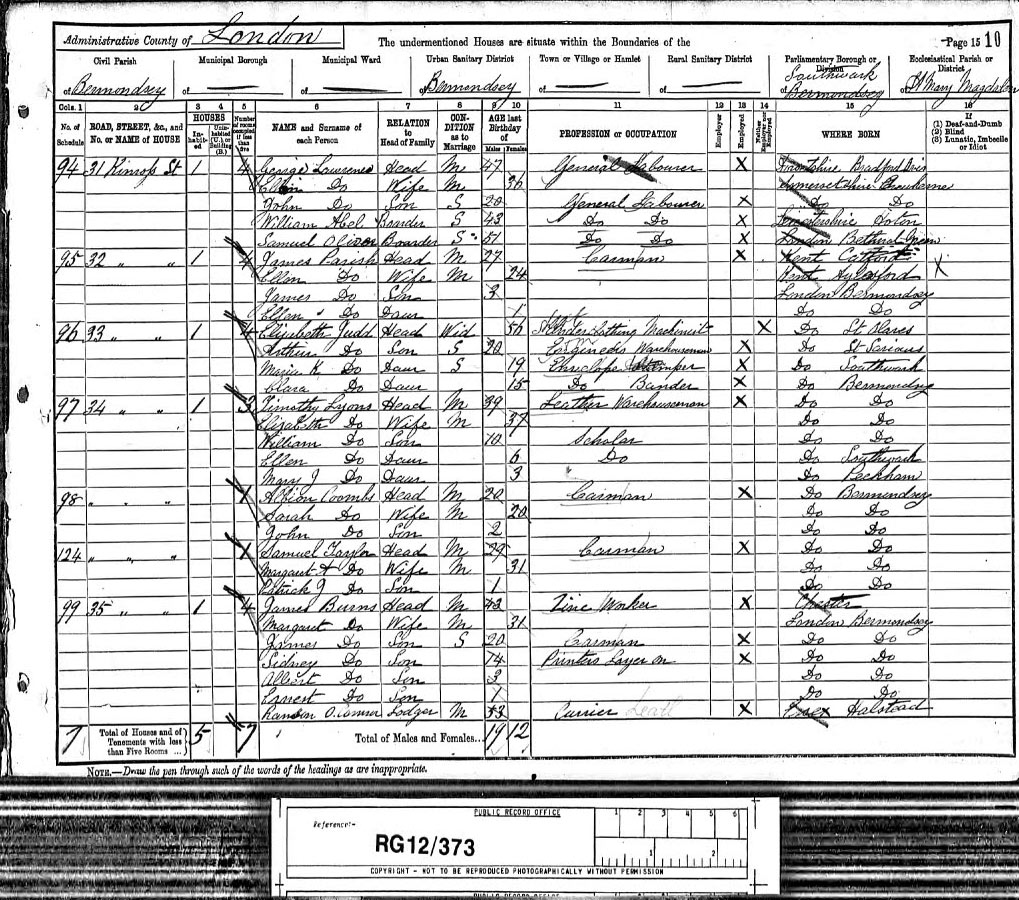 Administrative County of London
The undermentioned Houses are situate within the Boundaries of the
Page 15 10
Civil Parish
of Bermondsey
Municipal Borough
of
Municipal Ward
of
Urban Sanitary District
of Bermondsey
Town or Village or Hamlet
of
Rural Sanitary District
of
Parliamentary Borough or Division
of Southwark Bermondsey
Ecclesiastical Parish or District
of St Mary
Cols. 1 2 3 4 5 6 7 8 9 10 11 12 13 14 15 16
No. of Schedule
ROAD, STREET, &c., and No. or NAME of HOUSE
HOUSES
Inhabited
Uninhabited (U.) or Building (B.)
Number of rooms occupied if less than five
NAME and Surname of each Person
RELATION to Head of Family
CONDITION as to Marriage
AGE last Birthday of
Males Females
PROFESSION or OCCUPATION
Employer
Employed
Neither Employer nor Employed
WHERE BORN
If
(1) Deaf-and-Dumb
(2) Blind
(3) Lunatic, Imbecile or Idiot
94 31 Kinross St 1 4 George Lawrence Head M 47 General Labourer X Bradford
Do Wife M 36 Somersetshire
John Do Son S 20 General Labourer X Do Do
William Abel Boarder S 43 Do Do X Leicestershire Hoton
Samuel Oliver Boarder S 51 Do Do X London Bethnal Green
95 32 " " 1 4 James Parish Head M 27 Carman X Kent Catford X
Ellen Do Wife M 24 Kent Aylesford
James Do Son 3 London Bermondsey
Ellen " Do Daur 1 Do Do
96 33 " " 1 4 Elizabeth Judd Head Wid 56 Underclothing Machinist X Do St Olaves
Arthur Do Son S 20 Engineers Warehouseman X Do St Saviours
Maria K Do Daur S 19 Envelope Stamper X Do Southwark
Clara Do Daur 15 Do Bander X Do Bermondsey
97 34 " " 1 3 Timothy Lyons Head M 39 Leather Warehouseman X Do Do
Elizabeth Do Wife M 37 Do Do
William Do Son 10 Scholar Do Do
Ellen Do Daur 6 Do Do Southwark
Mary J Do Daur 3 Do Peckham
98 " " 1 Albion Coombs Head M 20 Carman X Do Bermondsey
Sarah Do Wife M 20 Do Do
John Do Son 2 Do Do
124 " " " 1 Samuel Taylor Head M 29 Carman X Do Do
Margaret A Do Wife M 31 Do Do
Patrick J Do Son 1 Do Do
99 35 " " 1 4 James Burns Head M 43 Zinc Worker X Chester
Margaret Do Wife M 31 London Bermondsey
James Do Son S 20 Carman X Do Do
Sidney Do Son 14 Printers Layer on X Do Do
Albert Do Son 3 Do Do
Ernest Do Son 1 Do Do
O.Connor Lodger M 53 Currier X Essex Halstead
7 Total of Houses and of Tenements with less than Five Rooms ... 5 7 Total of Males and Females... 19 12
NOTE.—Draw the pen through such of the words of the headings as are inappropriate.
PUBLIC RECORD OFFICE
1 2 3 4 5 6
Reference:-
RG12/373
1 2
COPYRIGHT - NOT TO BE REPRODUCED PHOTOGRAPHICALLY WITHOUT PERMISSION
PUBLIC RECORD OFFICE